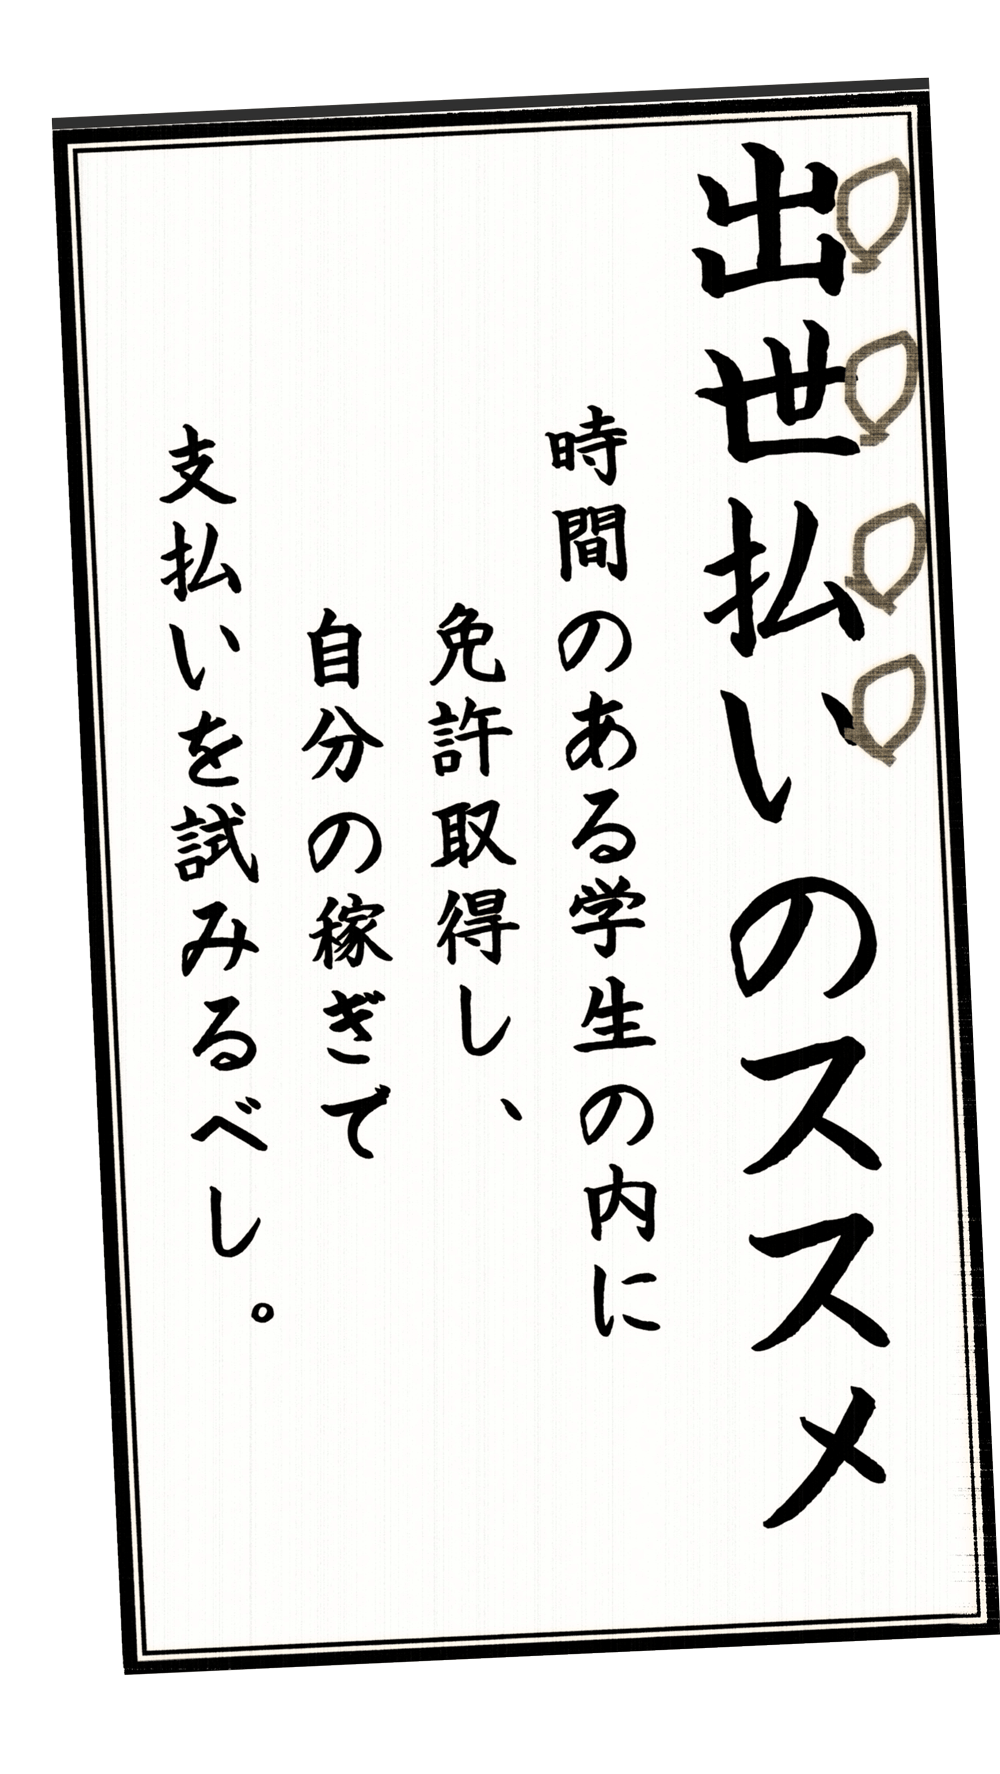 出世払いのススメ
時間のある学生の内に
免許取得し、
自分の稼ぎで
支払いを試みるべし。